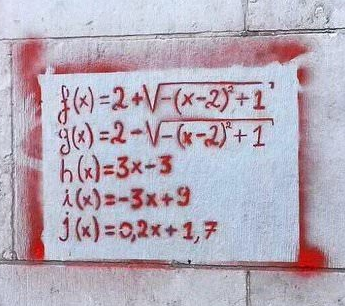 f(x)=2+√-(x-2)²+1'
g(x)=2-√-(x-2)²+1
h(x)=3x-3
i(x)=-3x+9
j(x)=0,2x+1,7